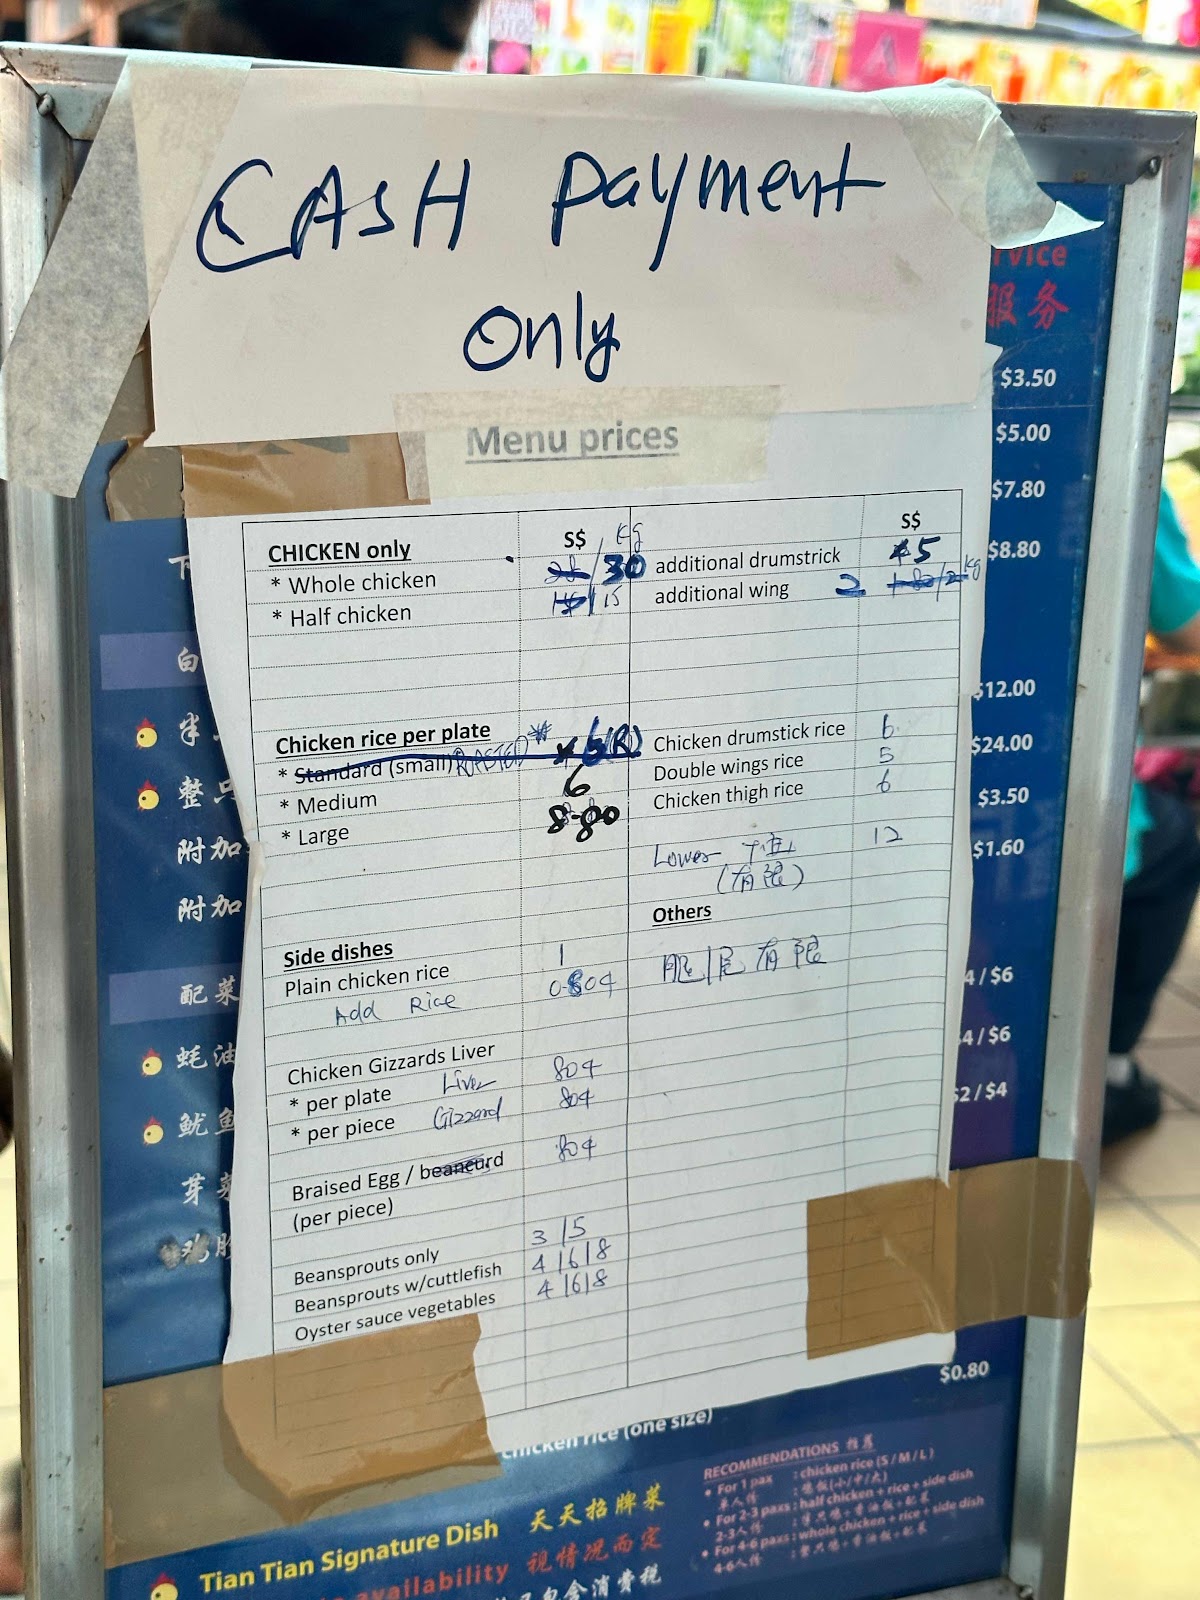 CASH Payment
Only
Menu prices
CHICKEN only S$ kg
* Whole chicken 30
* Half chicken 15
S$
additional drumstrick 5
additional wing 2
Chicken rice per plate
* Standard (small) ROASTED 6(R)
* Medium 6
* Large 8.80
Chicken drumstick rice 6
Double wings rice 5
Chicken thigh rice 6
Lower 下庄 12
(有限)
Side dishes
Plain chicken rice 1
Add Rice 0.80¢
Chicken Gizzards Liver
* per plate Liver 80¢
* per piece Gizzard 80¢
Braised Egg / beancurd 80¢
(per piece)
Beansprouts only 3/5
Beansprouts w/cuttlefish 4/6/8
Oyster sauce vegetables 4/6/8
Others
有限
rvice
服务
$3.50
$5.00
$7.80
$8.80
$12.00
$24.00
$3.50
$1.60
4 / $6
$4 / $6
$2 / $4
$0.80
下
白
半
整只
附加
附加
配菜
蚝油
鱿鱼
芽菜
鸡
chicken rice (one size)
Tian Tian Signature Dish 天天招牌菜
availability 视情况而定
已包含消费税
RECOMMENDATIONS 推荐
• For 1 pax : chicken rice (S / M / L)
单人份 : 鸡饭(小/中/大)
• For 2-3 paxs : half chicken + rice + side dish
2-3人份 : 半只鸡+香油饭+配菜
• For 4-6 paxs : whole chicken + rice + side dish
4-6人份 : 整只鸡+香油饭+配菜